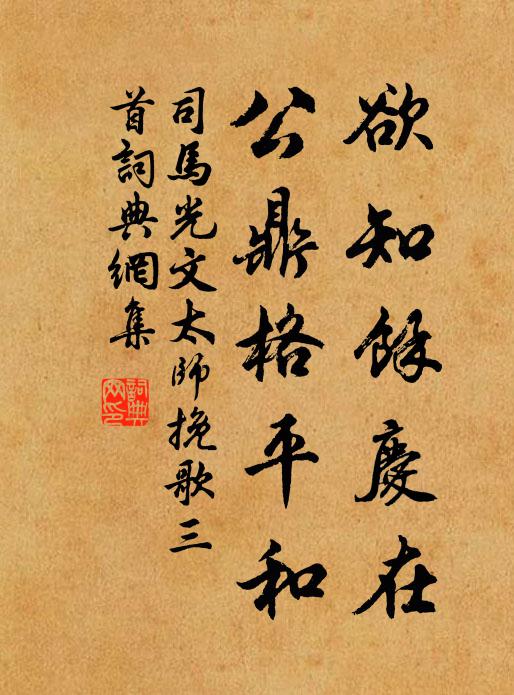 欲知餘慶在
公鼎格平和
司馬光文太師挽歌三
首詞典網集
詞典
網印